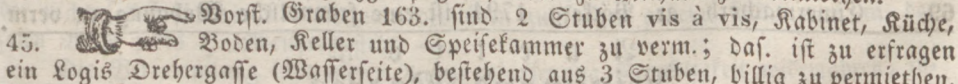 Vorst. Graben 163. sind 2 Stuben vis à vis, Kabinet, Küche,
45. Boden, Keller und Speisekammer zu verm.; das. ist zu erfragen
ein Logis Drehergasse (Wasserseite), bestehend aus 3 Stuben, billig zu vermiethen.